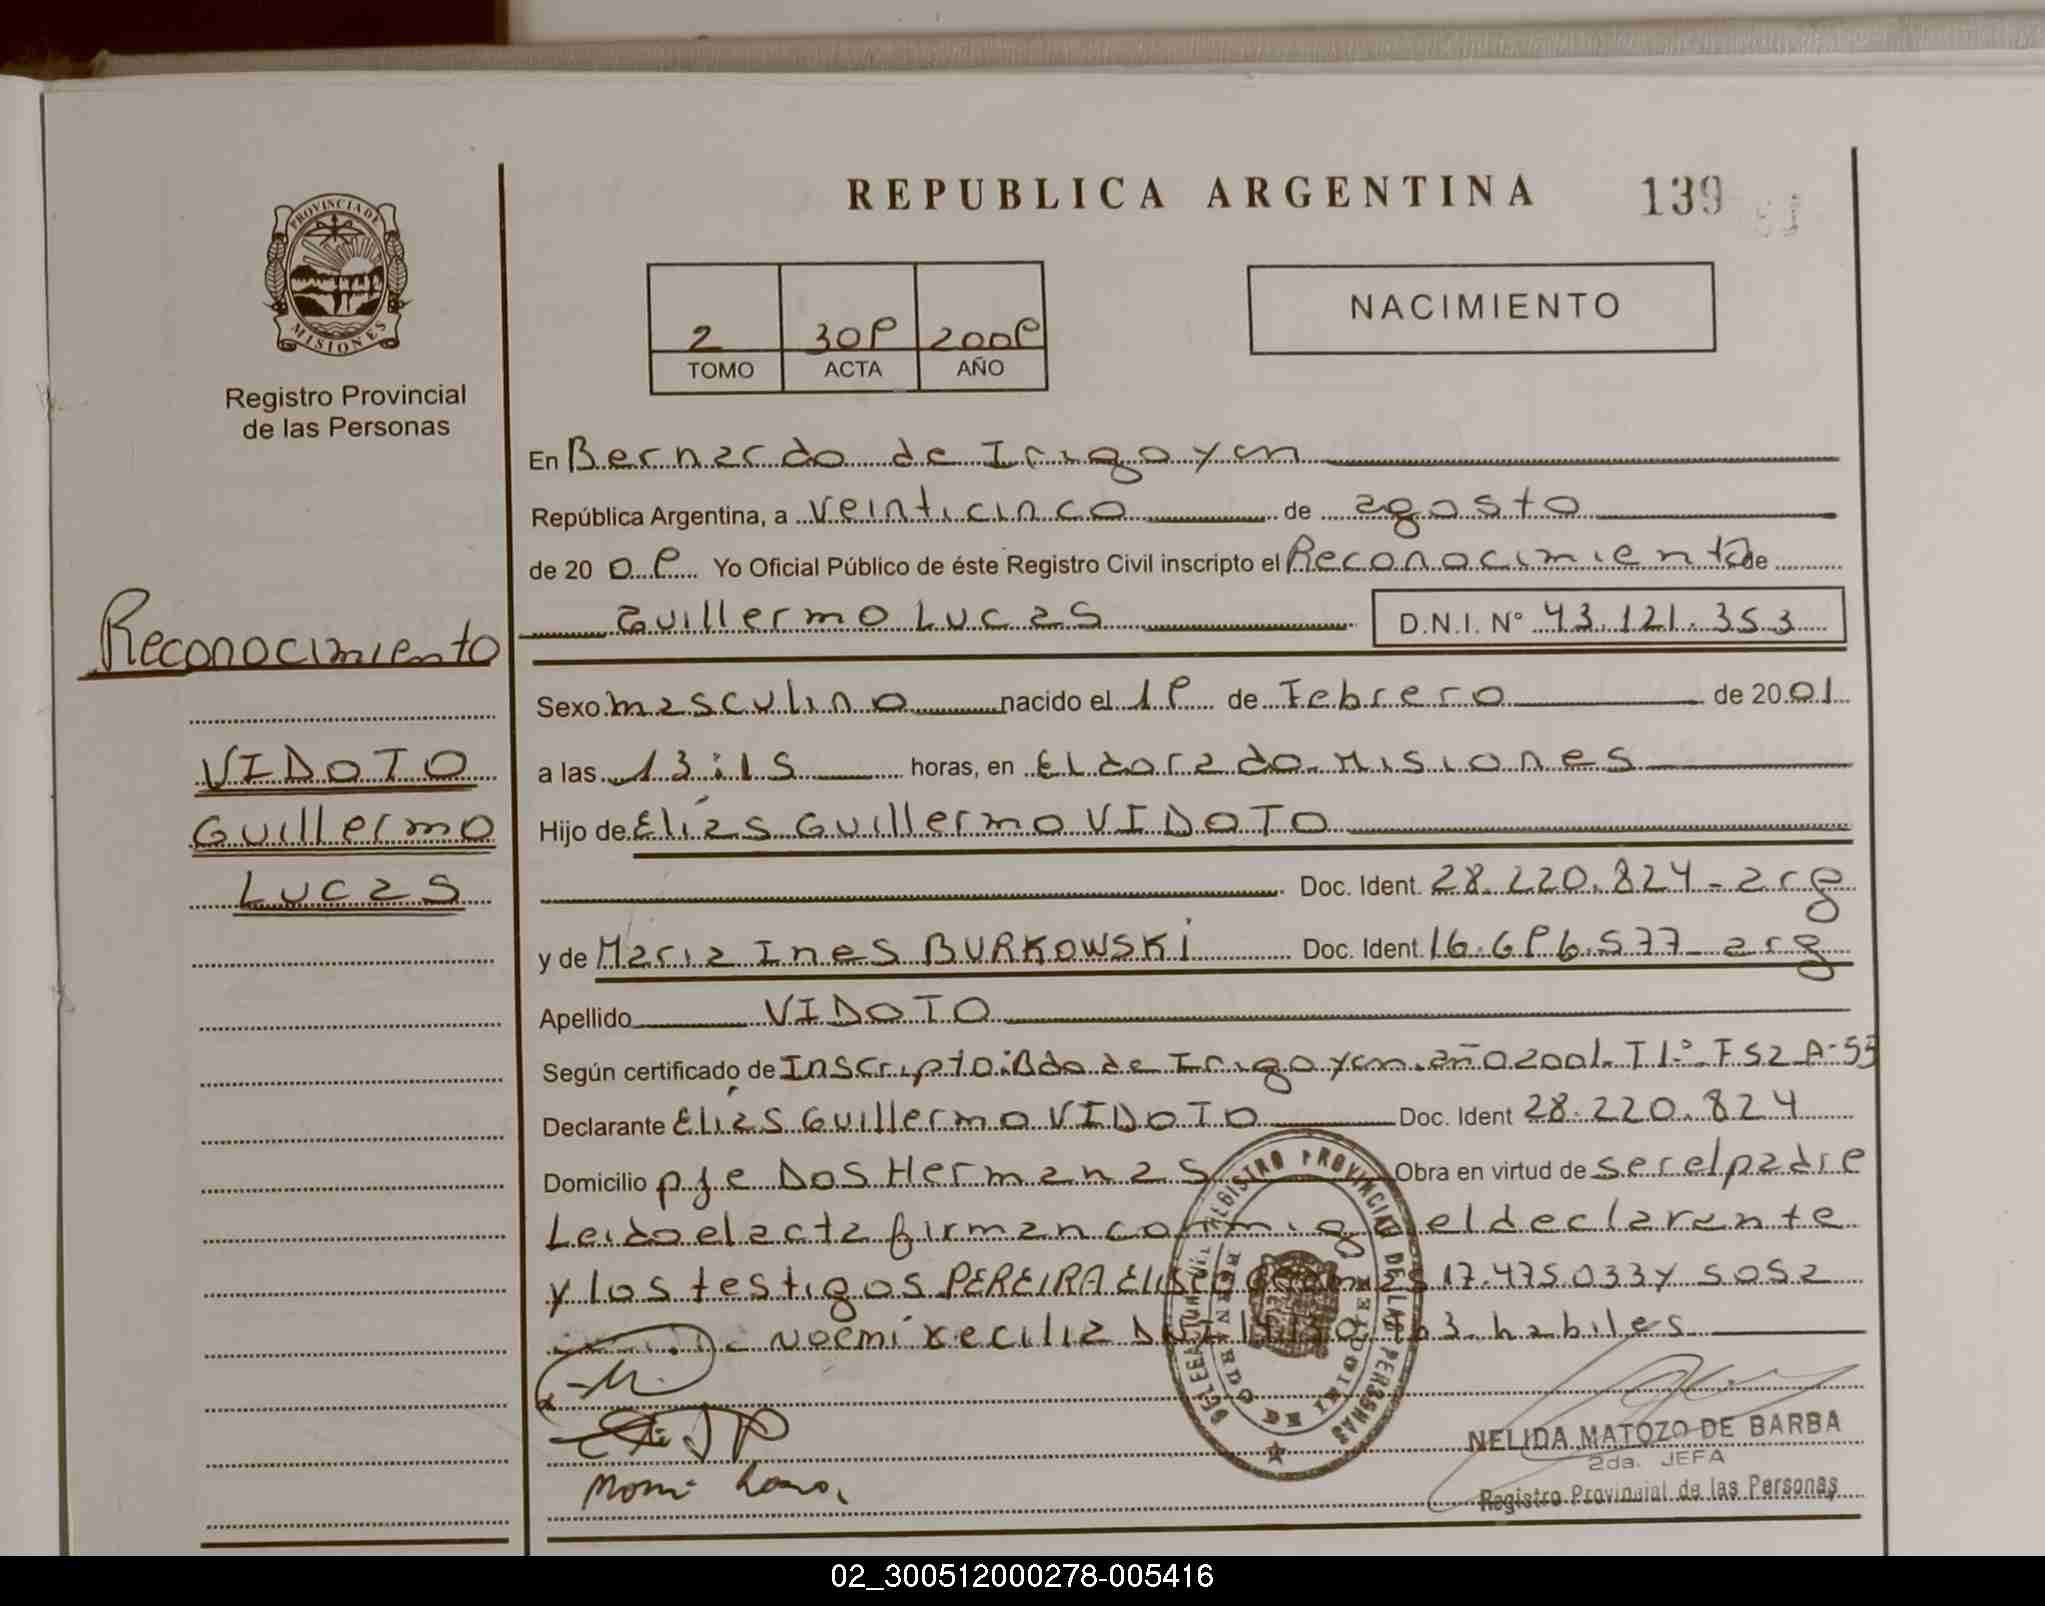 REPUBLICA ARGENTINA 139
PROVINCIA DE
MISIONES
2 309 2009
TOMO ACTA AÑO
NACIMIENTO
Registro Provincial
de las Personas
En Bernardo de Irigoyen
República Argentina, a veinticinco de agosto
de 20 09 Yo Oficial Público de éste Registro Civil inscripto el Reconocimiento de
Guillermo Lucas D.N.I. Nº 43.121.353
Reconocimiento
VIDOTO
Guillermo
Lucas
Sexo masculino nacido el 19 de Febrero de 2001
a las 13:15 horas, en Eldorado Misiones
Hijo de Elías Guillermo VIDOTO
Doc. Ident. 28.220.824 - arg
y de Maria Ines BURKOWSKi Doc. Ident. 16.696.577 - arg
Apellido VIDOTO
Según certificado de Inscripto: Bdo de Irigoyen. año 2001. T1.º F52 A-55
Declarante Elías Guillermo VIDOTO Doc. Ident 28.220.824
Domicilio pje Dos Hermanas Obra en virtud de ser el padre
Leido el acta firman conmigo el declarante
y los testigos PEREIRA Eliseo 17.475.033 y sosa
Noemi habiles
REGISTRO PROVINCIAL DE LAS PERSONAS
NELIDA MATOZO DE BARBA
2da. JEFA
Registro Provincial de las Personas
02_300512000278-005416